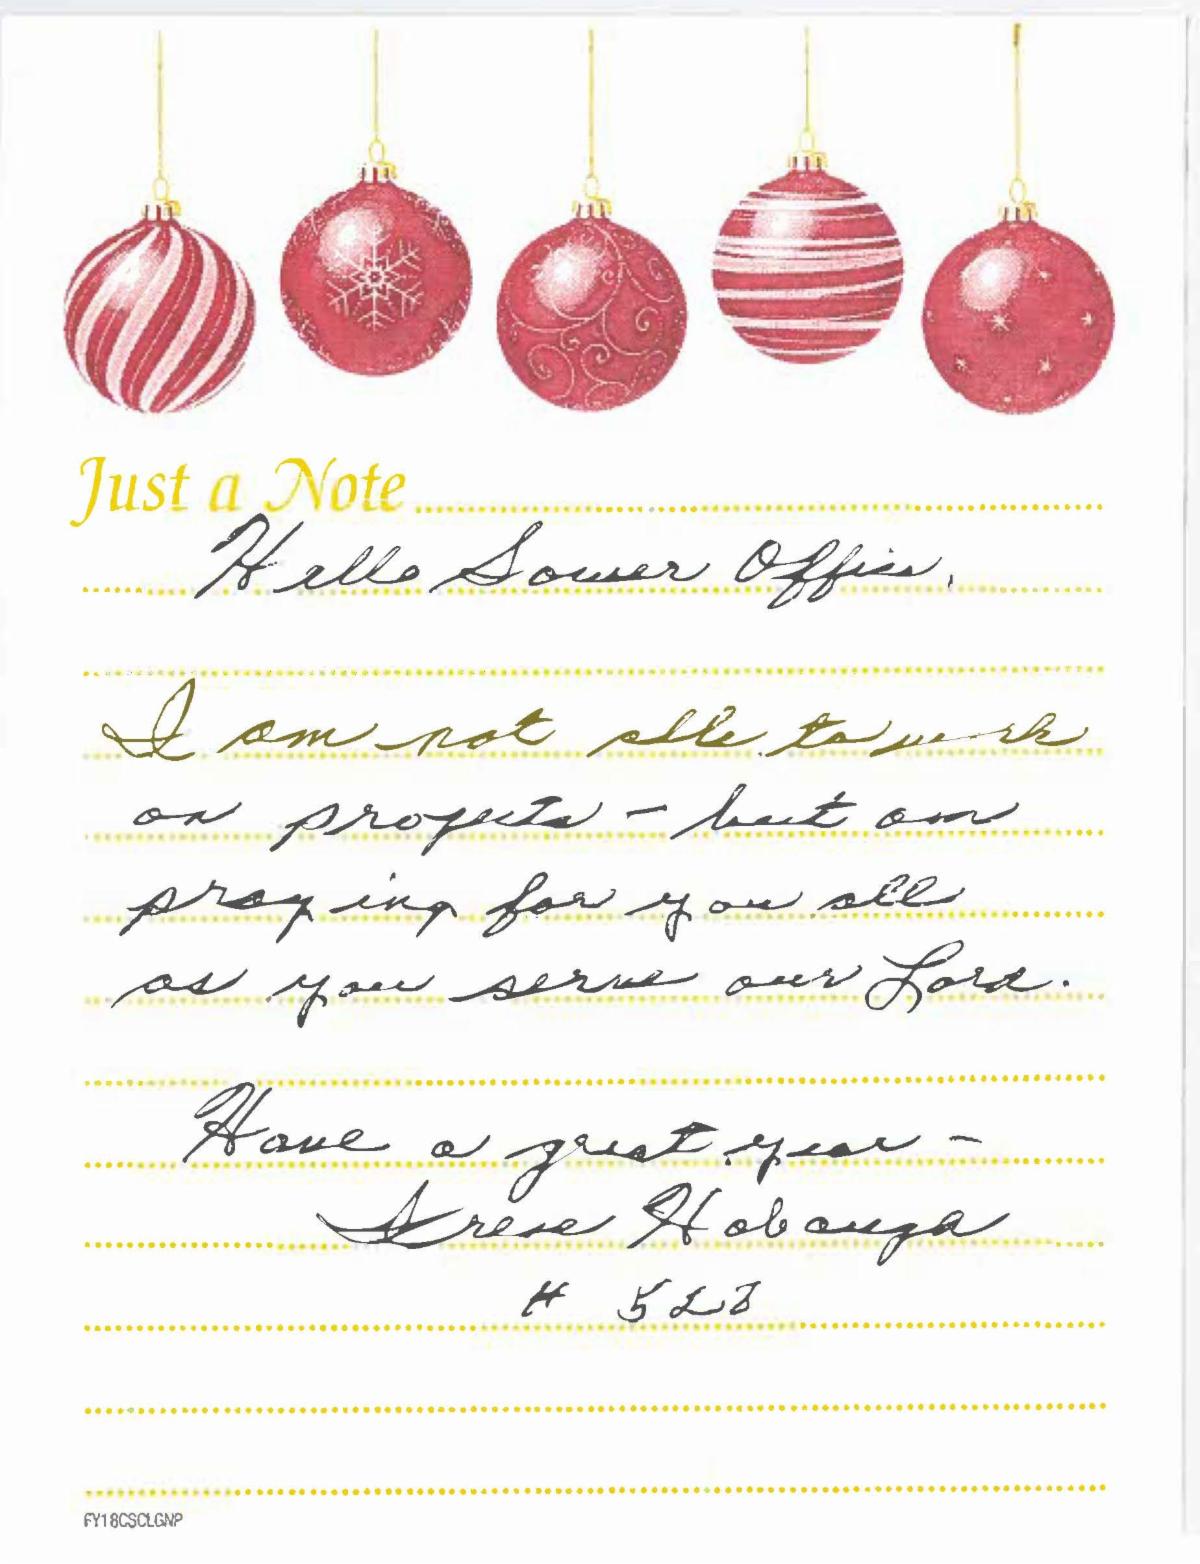 Just a Note
Hello Sower Office,
I am not able to work
on projects - but am
praying for you all
as you serve our Lord.
Have a great year -
Irene Hobaugh
# 523
FY18CSCLGNP